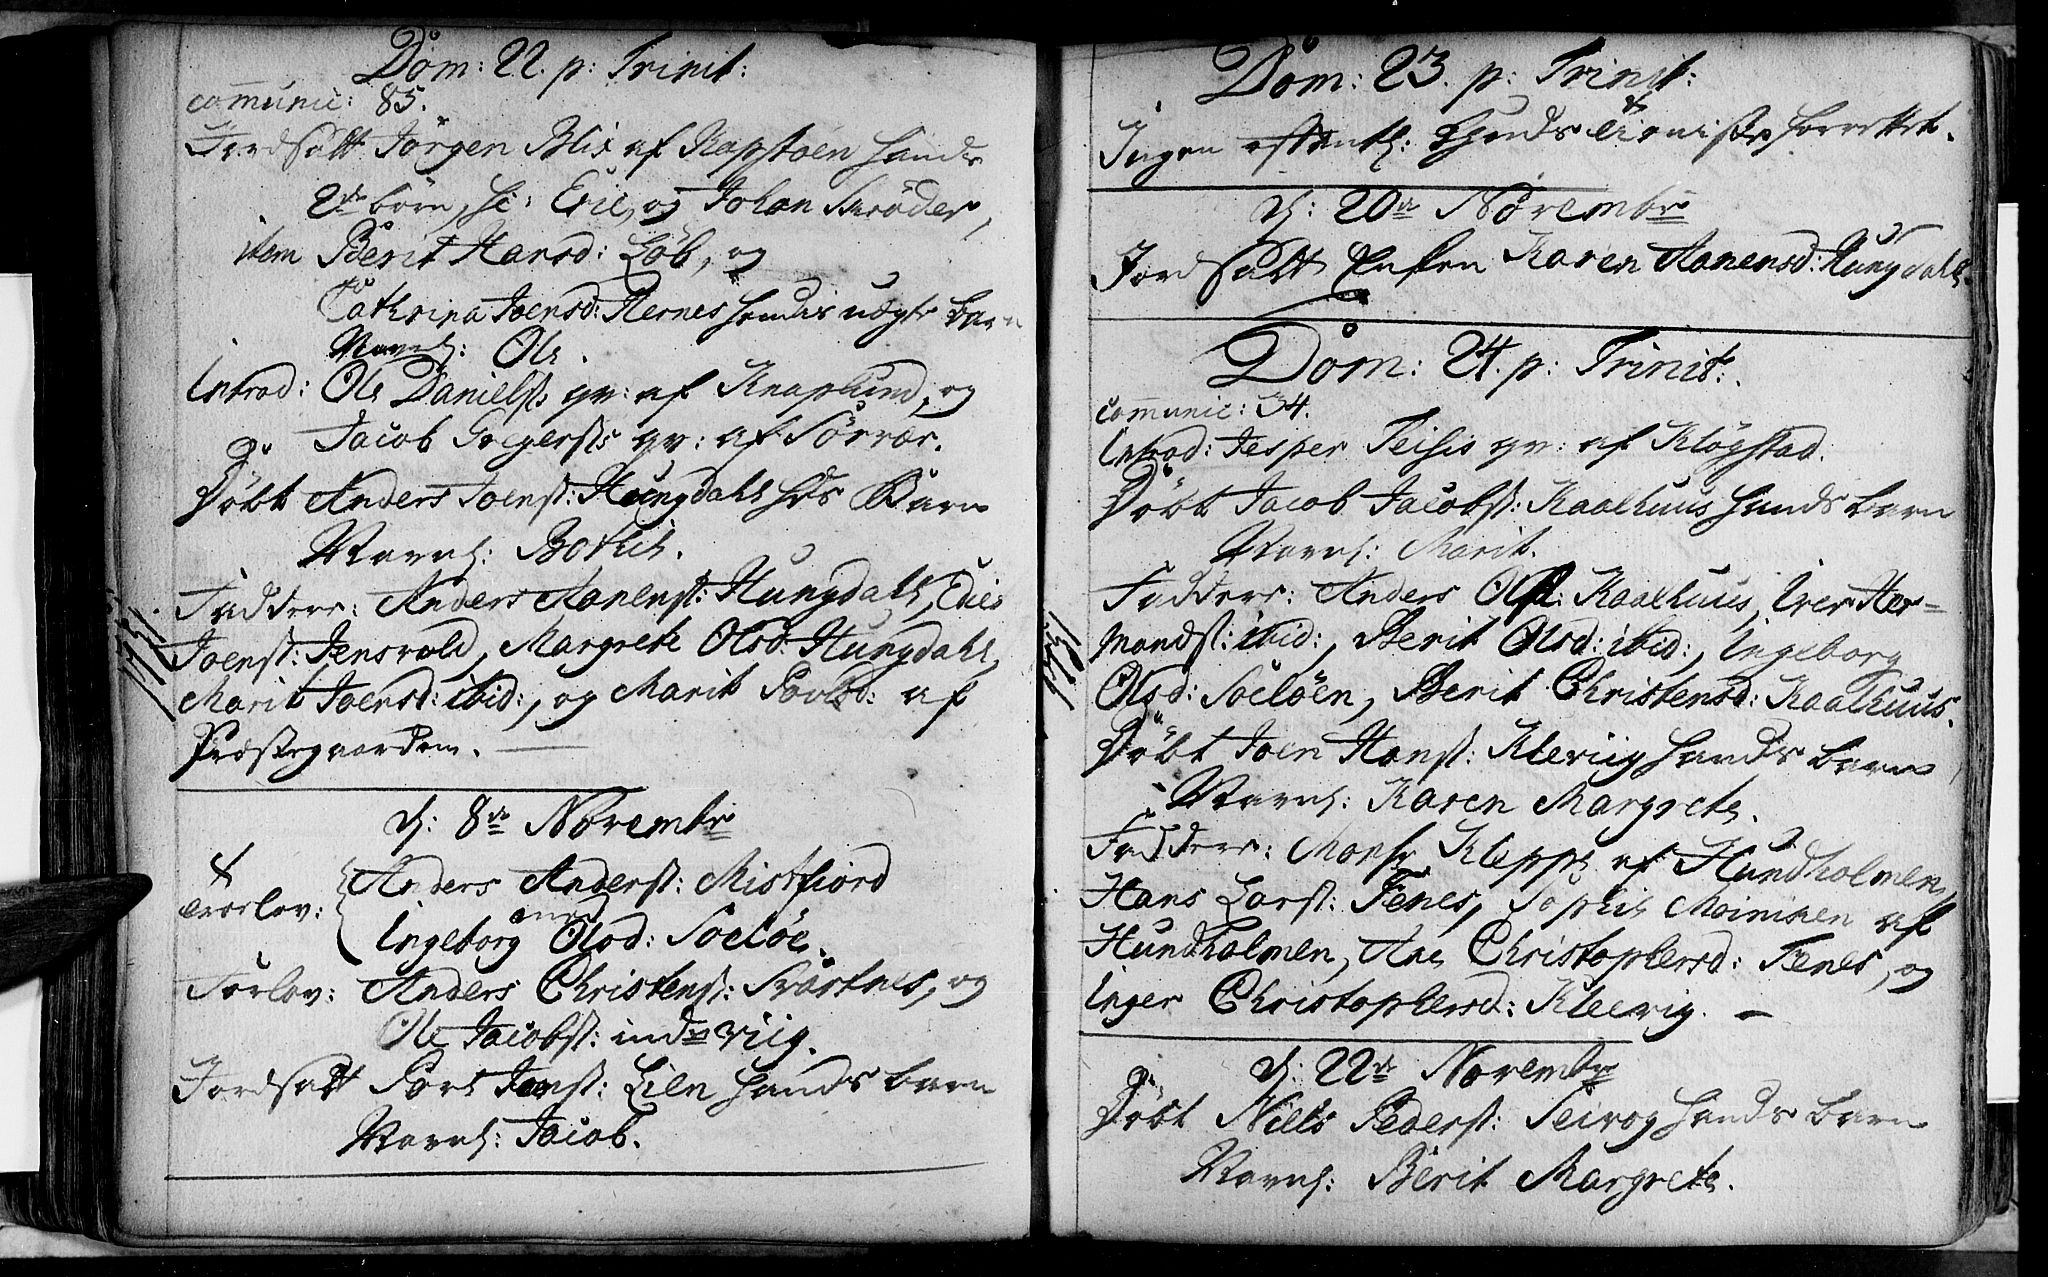 Dom: 22. p: Trinit:
com̄unic: 85.
Jordsatt Jörgen Blix af Kopstöen hands
2de börn, sc: Eric, og Johan Skröder,
item Berit Hansd: Løb, og
Cathrina Joensd: Hernes hendis udgte barn
Navnl: Ole.
Introd: Ole Daniels: qv: af Knaplund, og
Jacob Gregers: qv: af Sörvær.
Döbt Anders Joenss: Hungdahl hds Barn
Navnl: Bothel.
Faddere: Anders Aanenss: Hungdahl, Edis
Joenss: Jensvold, Margrete Olsd: Hungdahl,
Marit Joensd: ibid:, og Marit Povlsd: af
Præstegaarden.
d: 8de Novembr
Trolov: Anders Anderss: Mistfiord
med
Ingeborg Olsd: Soelöe.
Forlov: Anders Christenss: Svartnes, og
Ole Jacobss: indreviig.
Jordsatt Povl Jenss: Lien hands barn
Navnl: Jacob.
1751.
Dom: 23. p: Trinit:
Ingen Kyndelionister forrettet.
d: 20de Novembr
Jordsatt Enken Karen Aanensd: Hungdahl.
Dom: 24. p: Trinit:
com̄unic: 34.
Introd: Jesper Teisis qv: af Klögstad.
Döbt Jacob Jacobss: Kaalhuus hands barn
Navnl: Marit.
Faddere: Anders Ols: Kaalhuus, Iver Her-
mandss: ibid:, Berit Olsd: ibid:, Ingeborg
Olsd: Soelöen, Berit Christensd: Kaalhuus.
Döbt Joen Hanss: Kleviig hands barn
Navnl: Karen Margrete.
Faddere: Monsr Kleppe af Hundholmen,
Hans Larss: Fenes, Sophie Meinichen af
Hundholmen, Ane Christophersd: Fenes, og
Inger Christophersd: Kleevig.
d: 22de Novembr
Döbt Niels Pederss: Seivog hands barn
Navnl: Berit Margrete.
1751.